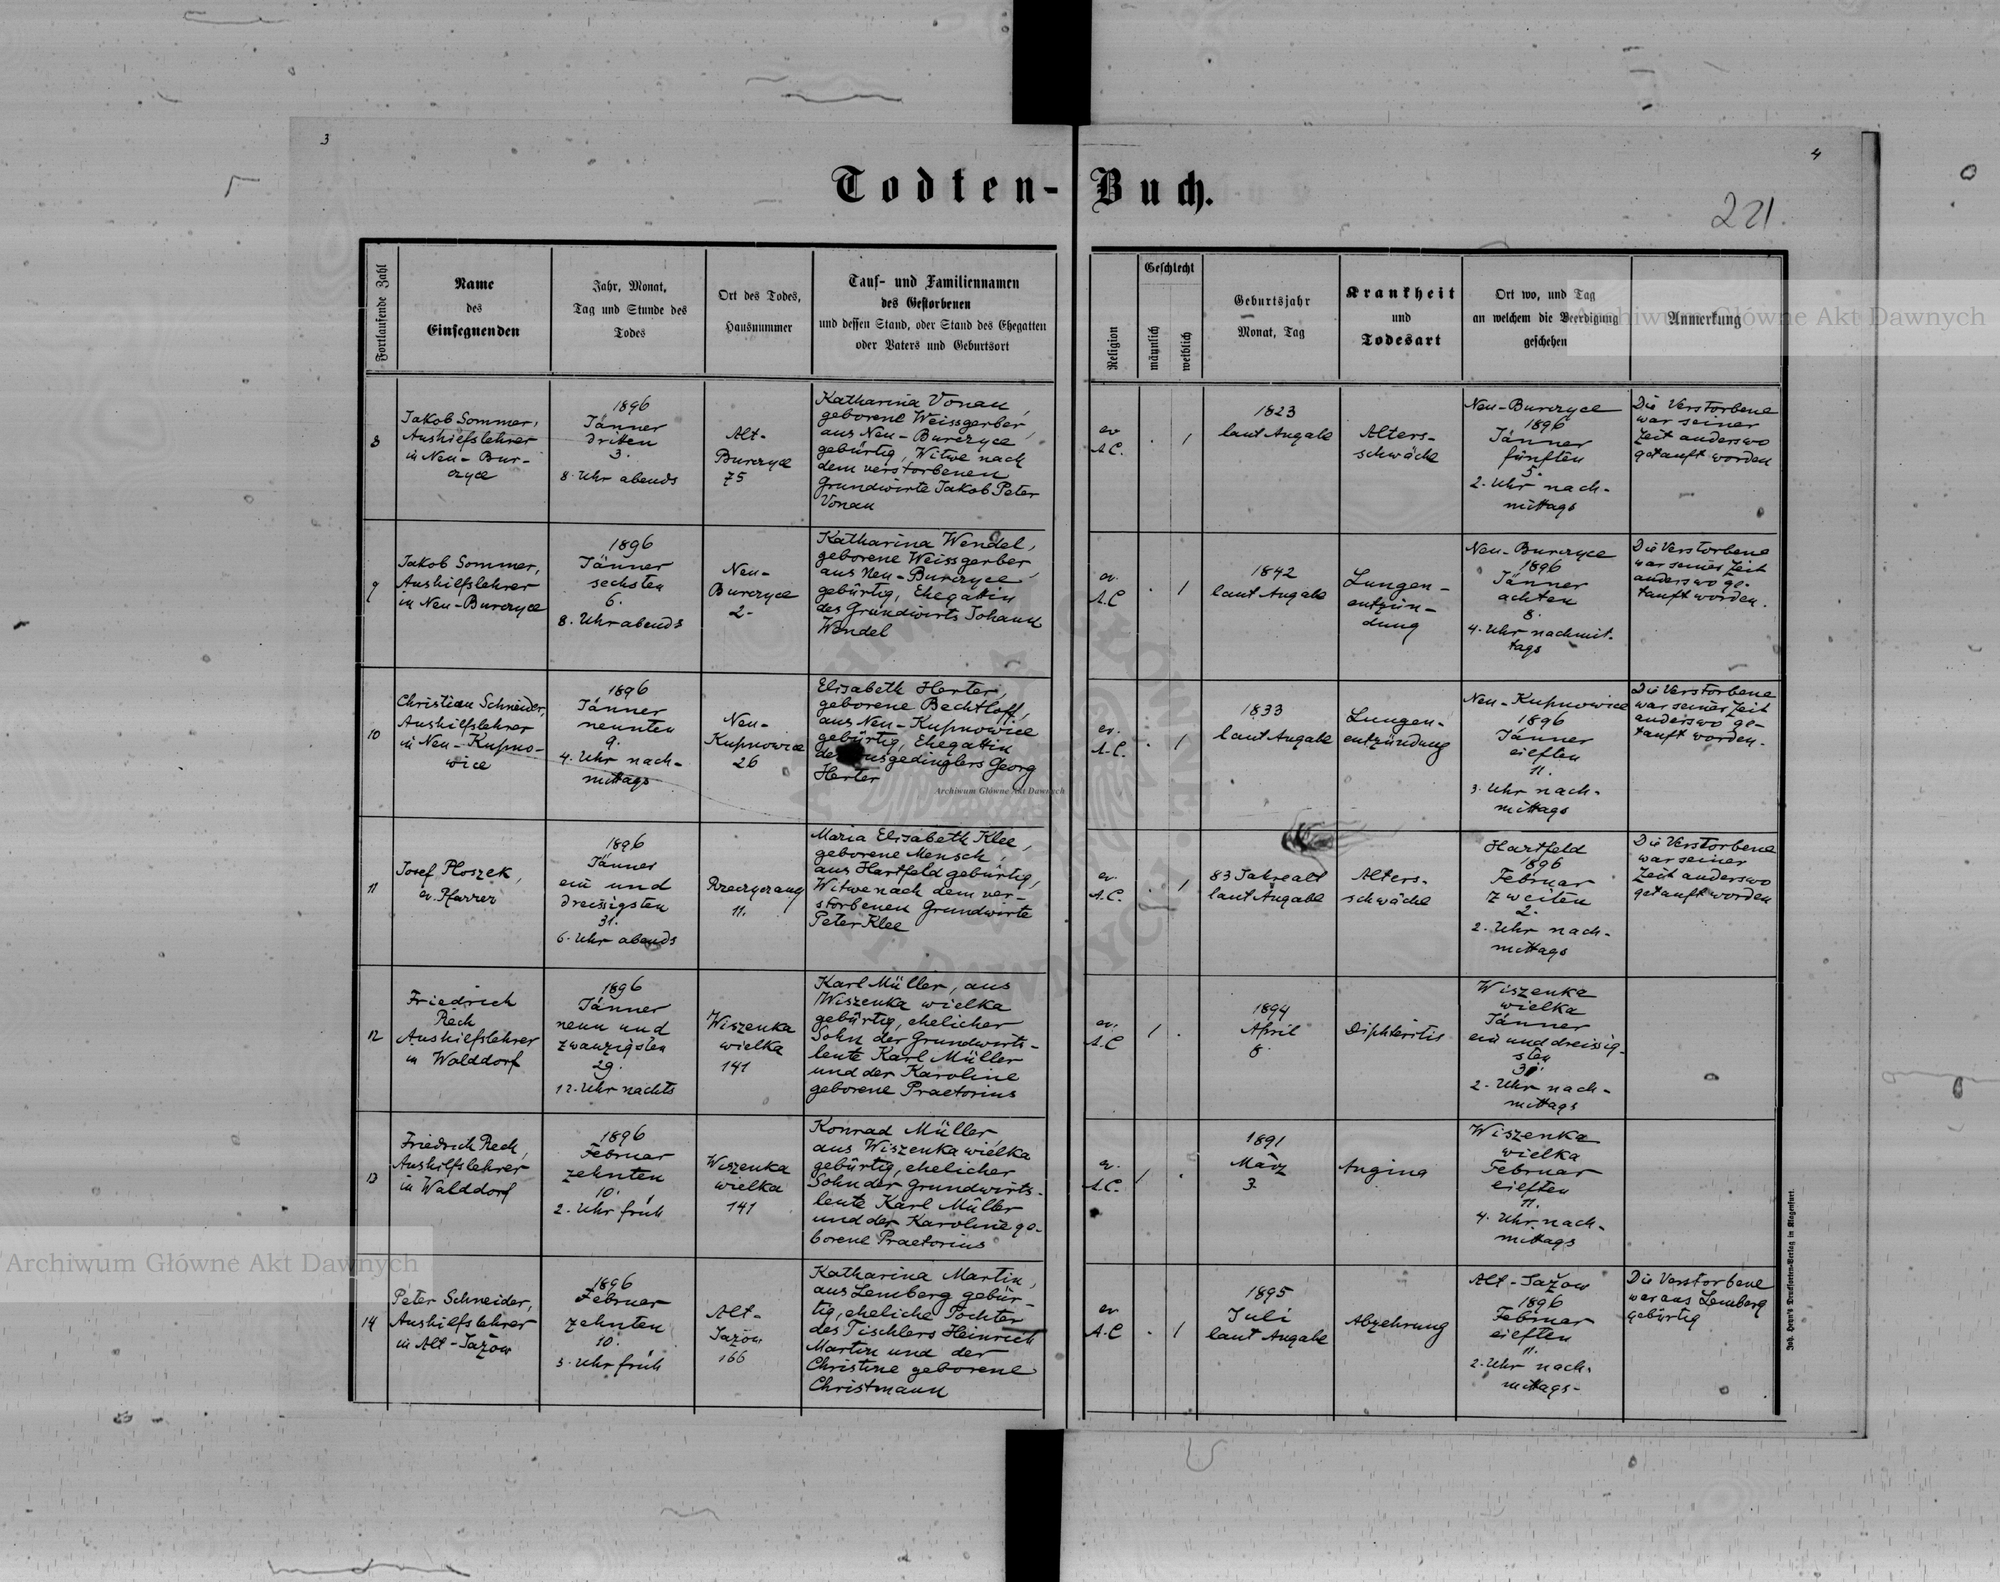 3
4
Todten-Buch.
221.
Fortlaufende Zahl
Name
des
Einsegnenden
Jahr, Monat,
Tag und Stunde des
Todes
Ort des Todes,
Hausnummer
Tauf- und Familiennamen
des Gestorbenen
und dessen Stand, oder Stand des Ehegatten
oder Vaters und Geburtsort
Religion
Geschlecht
männlich
weiblich
Geburtsjahr
Monat, Tag
Krankheit
und
Todesart
Ort wo, und Tag
an welchem die Beerdigung
geschehen
Anmerkung
8
Jakob Sommer,
Aushilfslehrer
in Neu-Bur-
czyce
1896
Jänner
dritten
3.
8. Uhr abends
Alt-
Burczyce
75
Katharina Vonau,
geborene Weissgerber,
aus Neu-Burczyce
gebürtig, Witwe nach
dem verstorbenen
Grundwirte Jakob Peter
Vonau
ev
A.C.
. 1
1823
laut Angabe
Alters-
schwäche
Neu-Burczyce
1896
Jänner
fünften
5.
2. Uhr nach-
mittags
Die Verstorbene
war seiner
Zeit anderswo
getauft worden
9
Jakob Sommer,
Aushilfslehrer
in Neu-Burczyce
1896
Jänner
sechsten
6.
8. Uhr abends
Neu-
Burczyce
2.
Katharina Wendel,
geborene Weissgerber,
aus Neu-Burczyce
gebürtig, Ehegattin
des Grundwirts Johann
Wendel
ev.
A.C
. 1
1842
laut Angabe
Lungen-
entzün-
dung
Neu-Burczyce
1896
Jänner
achten
8.
4. Uhr nachmit-
tags
Die Verstorbene
war seiner Zeit
anderswo ge-
tauft worden.
10
Christian Schneider,
Aushilfslehrer
in Neu-Kupno-
wice
1896
Jänner
neunten
9.
4. Uhr nach-
mittags
Neu-
Kupnowice
26
Elisabeth Herter,
geborene Bechtloff,
aus Neu-Kupnowice
gebürtig, Ehegattin
des Ausgedinglers Georg
Herter
ev.
A.C.
. 1
1833
laut Angabe
Lungen-
entzündung
Neu-Kupnowice
1896
Jänner
eilften
11.
3. Uhr nach-
mittags
Die Verstorbene
war seiner Zeit
anderswo ge-
tauft worden.
11
Josef Ploszek,
ev. Pfarrer
1896
Jänner
ein und
dreissigsten
31.
6. Uhr abends
Rzeczyczany
11.
Maria Elisabeth Klee,
geborene Mensch,
aus Hartfeld gebürtig,
Witwe nach dem ver-
storbenen Grundwirte
Peter Klee
ev.
A.C.
. 1
83 Jahre alt
laut Angabe
Alters-
schwäche
Hartfeld
1896
Februar
zweiten
2.
2. Uhr nach-
mittags
Die Verstorbene
war seiner
Zeit anderswo
getauft worden
12
Friedrich
Rech
Aushilfslehrer
in Walddorf
1896
Jänner
neun und
zwanzigsten
29.
12. Uhr nachts
Wiszenka
wielka
141
Karl Müller, aus
Wiszenka wielka
gebürtig, ehelicher
Sohn der Grundwirts-
leute Karl Müller
und der Karoline
geborene Praetorius
ev.
A.C
1 .
1894
April
8.
Diphteritis
Wiszenka
wielka
Jänner
ein und dreissig-
sten
31.
2. Uhr nach-
mittags
13
Friedrich Rech,
Aushilfslehrer
in Walddorf
1896
Februar
zehnten
10.
2. Uhr früh
Wiszenka
wielka
141
Konrad Müller
aus Wiszenka wielka
gebürtig, ehelicher
Sohn der Grundwirts-
leute Karl Müller
und der Karoline ge-
borene Praetorius
ev.
A.C.
1 .
1891
März
3.
Angina
Wiszenka
wielka
Februar
eilften
11.
4. Uhr nach-
mittags
14
Peter Schneider,
Aushilfslehrer
in Alt-Jażow
1896
Februar
zehnten
10.
3. Uhr früh
Alt-
Jażow
166
Katharina Martin,
aus Lemberg gebür-
tig, eheliche Tochter
des Tischlers Heinrich
Martin und der
Christine geborene
Christmann
ev
A.C
. 1
1895
Juli
laut Angabe
Abzehrung
Alt-Jażow
1896
Februar
eilften
11.
2. Uhr nach-
mittags-
Die Verstorbene
war aus Lemberg
gebürtig
Joh. Heyn's Drucksorten-Verlag in Klagenfurt.
Archiwum Główne Akt Dawnych
Archiwum Główne Akt Dawnych
Archiwum Główne Akt Dawnych